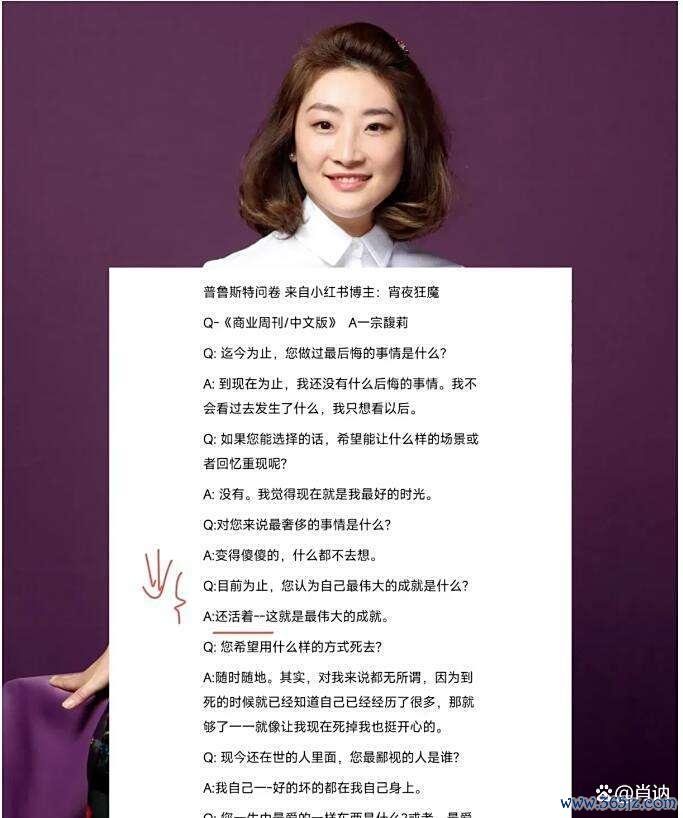 普鲁斯特问卷 来自小红书博主：宵夜狂魔
Q-《商业周刊/中文版》 A一宗馥莉
Q: 迄今为止，您做过最后悔的事情是什么？
A: 到现在为止，我还没有什么后悔的事情。我不
会看过去发生了什么，我只想看以后。
Q: 如果您能选择的话，希望能让什么样的场景或
者回忆重现呢？
A: 没有。我觉得现在就是我最好的时光。
Q:对您来说最奢侈的事情是什么？
A:变得傻傻的，什么都不去想。
Q:目前为止，您认为自己最伟大的成就是什么？
A:还活着--这就是最伟大的成就。
Q: 您希望用什么样的方式死去？
A:随时随地。其实，对我来说都无所谓，因为到
死的时候就已经知道自己已经经历了很多，那就
够了一一就像让我现在死掉我也挺开心的。
Q: 现今还在世的人里面，您最鄙视的人是谁？
A:我自己一-好的坏的都在我自己身上。
Q: 您一生中最爱的一样东西是什么?或者，最爱
@肖讷
www.365jz.com